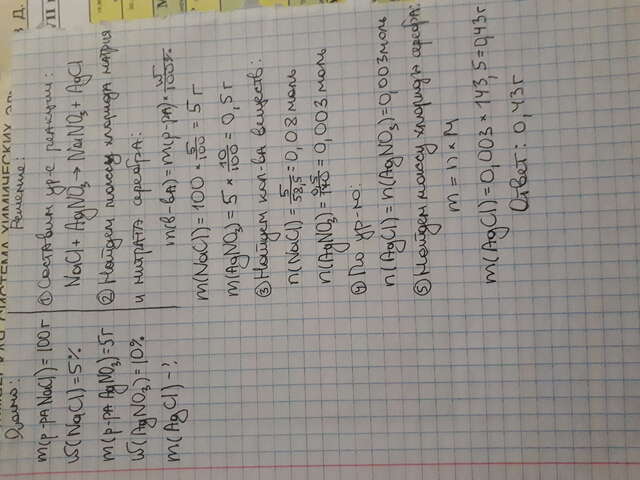 СИСТЕМА ХИМИЧЕСКИХ ЭЛ
В Д.
VII г
Дано:
m(р-ра NaCl) = 100 г
w(NaCl) = 5%
m(р-ра AgNO₃) = 5 г
w(AgNO₃) = 10%
m(AgCl) - ?
Решение:
① Составим ур-е реакции:
NaCl + AgNO₃ → NaNO₃ + AgCl
② Найдем массу хлорида натрия
и нитрата серебра:
m(в-ва) = m(р-ра) × w/100%
m(NaCl) = 100 × 5/100 = 5 г
m(AgNO₃) = 5 × 10/100 = 0,5 г
③ Найдем кол-ва веществ:
n(NaCl) = 5/58,5 = 0,08 моль
n(AgNO₃) = 0,5/170 = 0,003 моль
④ По ур-ю:
n(AgCl) = n(AgNO₃) = 0,003 моль
⑤ Найдем массу хлорида серебра:
m = n × M
m(AgCl) = 0,003 × 143,5 = 0,43 г
Ответ: 0,43 г